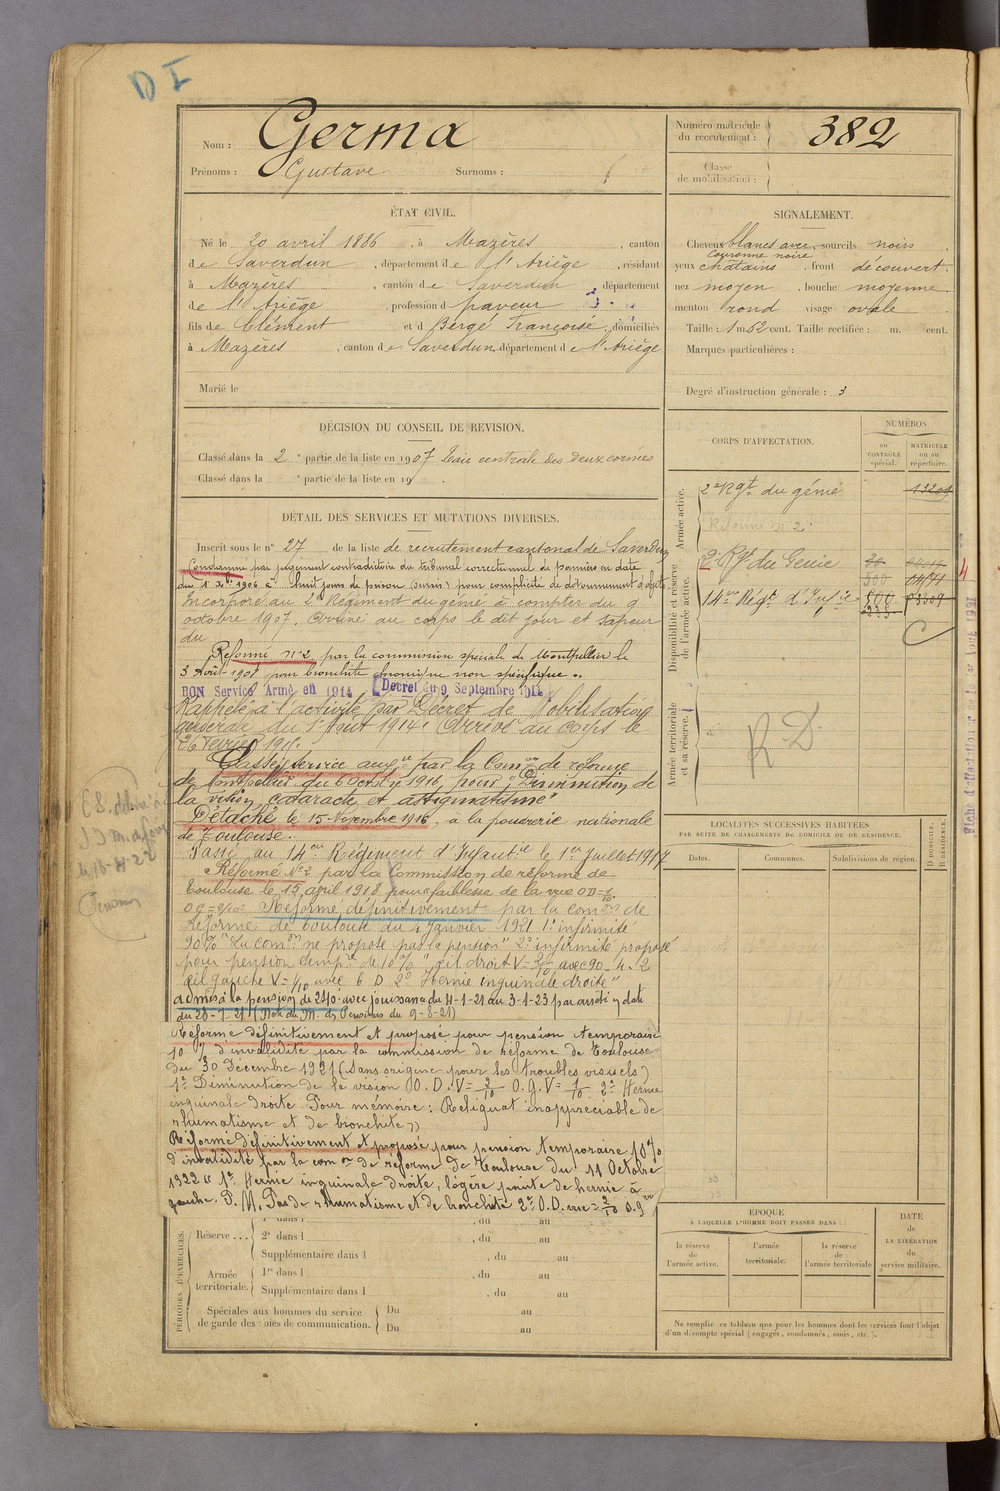 D I
Nom : Germa
Prénoms : Gustave Surnoms :
Numéro matricule du recrutement : 382
Classe de mobilisation :
ÉTAT CIVIL.
Né le 20 avril 1886, à Mazères, canton
de Saverdun, département de l'Ariège, résidant
à Mazères, canton de Saverdun, département
de l'Ariège, profession d paveur
fils de Clément et d Bergé Françoise, domiciliés
à Mazères, canton de Saverdun département de l'Ariège
Marié le
SIGNALEMENT.
Cheveux blancs avec couronne noire, sourcils noirs
yeux châtains, front découvert.
nez moyen, bouche moyenne
menton rond visage ovale
Taille : 1 m. 62 cent. Taille rectifiée : m. cent.
Marques particulières :
Degré d'instruction générale : 3
DÉCISION DU CONSEIL DE REVISION.
Classé dans la 2e partie de la liste en 1907 Taie centrale des deux cornées
Classé dans la e partie de la liste en 19 .
DÉTAIL DES SERVICES ET MUTATIONS DIVERSES.
Inscrit sous le n° 27 de la liste de recrutement cantonal de Saverdun
Condamné par jugement contradictoire du tribunal correctionnel de Pamiers en date
du 1 Xbre 1906 à huit jours de prison (sursis) pour complicité de détournement d'objets
Incorporé au 2e Régiment du génie à compter du 9
octobre 1907. Arrivé au corps le dit jour et sapeur
du
Réformé n° 2 par la commission spéciale de Montpellier le
3 Août 1908 pour bronchite chronique non spécifique.
BON Service Armé en 1914 Décret du 9 Septembre 1914
Rappelé à l'activité par Décret de Mobilisation
générale du 1er Août 1914. Arrivé au corps le
26 février 1915.
Classé service auxre par la Comon de réforme
de Montpellier du 6 Octobre 1916, pour "Diminution de
la vision, cataracte et astigmatisme"
Détaché le 15 Novembre 1916, à la poudrerie nationale
de Toulouse.
Passé au 14e Régiment d'Infantie le 1er Juillet 1917
Réformé N° 2 par la Commission de réforme de
Toulouse le 15 avril 1918 pour faiblesse de la vue OD=1/10
OG=2/10 Réformé définitivement par la comon de
Réforme de Toulouse du 4 Janvier 1921 1° infirmité
90% "La comon ne propose pas la pension" 2° infirmité proposé
pour pension tempre de 10% "œil droit V=2/10 avec 90-4.2
œil gauche V=1/10 avec 6 D 2° Hernie inguinale droite"
admis à la pension de 240f avec jouissance du 4-1-21 au 3-1-23 par arrêté en date
du 26-7-21 (Note du M. des Pensions du 9-8-21)
Réformé définitivement et proposé pour pension temporaire
10 % d'invalidité par la commission de réforme de Toulouse
du 30 Décembre 1921 (Sans origine pour les troubles visuels)
1° Diminution de la vision O.D.V=2/10 O.G.V=1/10. 2° Hernie
inguinale droite. Pour mémoire : Reliquat inappréciable de
rhumatisme et de bronchite »
Réformé définitivement et proposé pour pension temporaire 10%
d'invalidité par la comon de réforme de Toulouse du 11 Octobre
1922 « 1° Hernie inguinale droite, légère pointe de hernie à
gauche. P.M. Pas de rhumatisme et de bronchite 2° O.D. vue=2/10 O.G
CORPS D'AFFECTATION.
NUMÉROS
AU CONTRÔLE spécial.
MATRICULE ou au répertoire.
Armée active.
2e Rgt du génie 13201
Réformé n° 2
Disponibilité et réserve de l'armée active.
2e Rgt du Génie 04171
14me Régt d'Infie 500 P3309
C
Armée territoriale et sa réserve.
R.D.
LOCALITÉS SUCCESSIVES HABITÉES
PAR SUITE DE CHANGEMENTS DE DOMICILE OU DE RÉSIDENCE.
Dates. Communes. Subdivisions de région. D DOMICILE. R RÉSIDENCE.
PÉRIODES D'EXERCICES.
Réserve...
1re dans l , du au
2e dans l , du au
Supplémentaire dans l , du au
Armée territoriale.
1re dans l , du au
Supplémentaire dans l , du au
Spéciales aux hommes du service de garde des voies de communication.
Du au
Du au
ÉPOQUE
À LAQUELLE L'HOMME DOIT PASSER DANS :
la réserve de l'armée active.
l'armée territoriale.
la réserve de l'armée territoriale
DATE de LA LIBÉRATION du service militaire.
Ne remplir ce tableau que pour les hommes dont les services font l'objet
d'un décompte spécial (engagés, condamnés, omis, etc.).